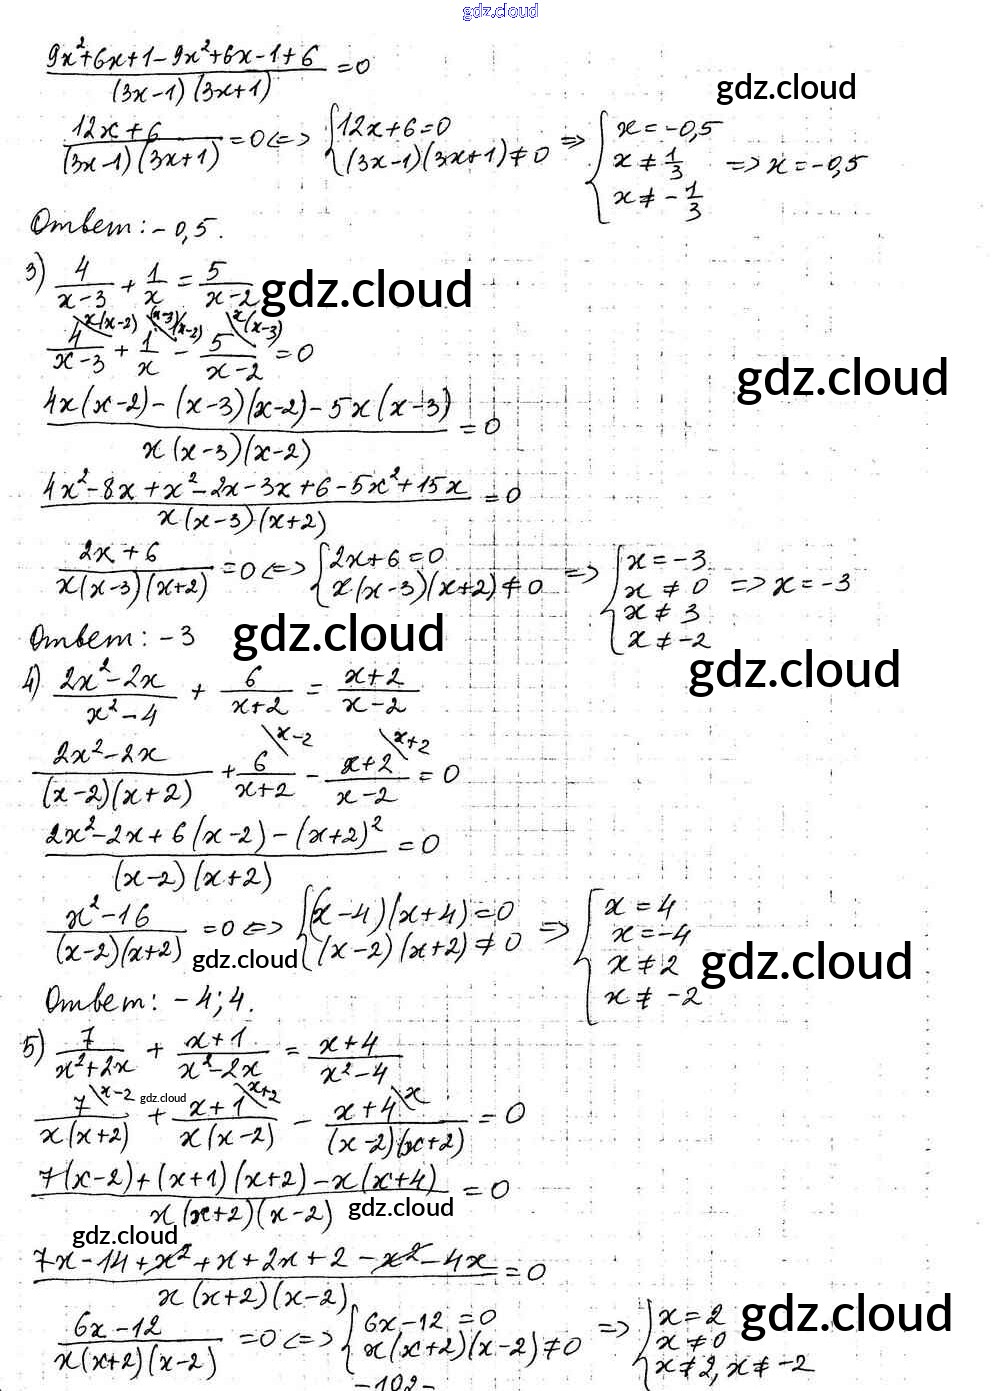 gdz.cloud
(9x²+6x+1-9x²+6x-1+6)/((3x-1)(3x+1)) = 0
gdz.cloud
(12x+6)/((3x-1)(3x+1)) = 0 <=> {12x+6=0; (3x-1)(3x+1)≠0 => {x=-0,5; x≠1/3; x≠-1/3 => x=-0,5
Ответ: -0,5.
3) 4/(x-3) + 1/x = 5/(x-2)
gdz.cloud
4\x(x-2)/(x-3) + 1\(x-3)(x-2)/x - 5\x(x-3)/(x-2) = 0
gdz.cloud
(4x(x-2)-(x-3)(x-2)-5x(x-3))/(x(x-3)(x-2)) = 0
(4x²-8x+x²-2x-3x+6-5x²+15x)/(x(x-3)(x+2)) = 0
(2x+6)/(x(x-3)(x+2)) = 0 <=> {2x+6=0; x(x-3)(x+2)≠0 => {x=-3; x≠0; x≠3; x≠-2 => x=-3
Ответ: -3
gdz.cloud
gdz.cloud
4) (2x²-2x)/(x²-4) + 6/(x+2) = (x+2)/(x-2)
(2x²-2x)/((x-2)(x+2)) + 6\x-2/(x+2) - (x+2)\x+2/(x-2) = 0
(2x²-2x+6(x-2)-(x+2)²)/((x-2)(x+2)) = 0
(x²-16)/((x-2)(x+2)) = 0 <=> {(x-4)(x+4)=0; (x-2)(x+2)≠0 => {x=4; x=-4; x≠2; x≠-2
gdz.cloud
gdz.cloud
Ответ: -4; 4.
5) 7/(x²+2x) + (x+1)/(x²-2x) = (x+4)/(x²-4)
gdz.cloud
7\x-2/(x(x+2)) + (x+1)\x+2/(x(x-2)) - (x+4)\x/((x-2)(x+2)) = 0
(7(x-2)+(x+1)(x+2)-x(x+4))/(x(x+2)(x-2)) = 0
gdz.cloud
gdz.cloud
(7x-14+x²+x+2x+2-x²-4x)/(x(x+2)(x-2)) = 0
(6x-12)/(x(x+2)(x-2)) = 0 <=> {6x-12=0; x(x+2)(x-2)≠0 => {x=2; x≠0; x≠2, x≠-2
gdz.cloud
-102-